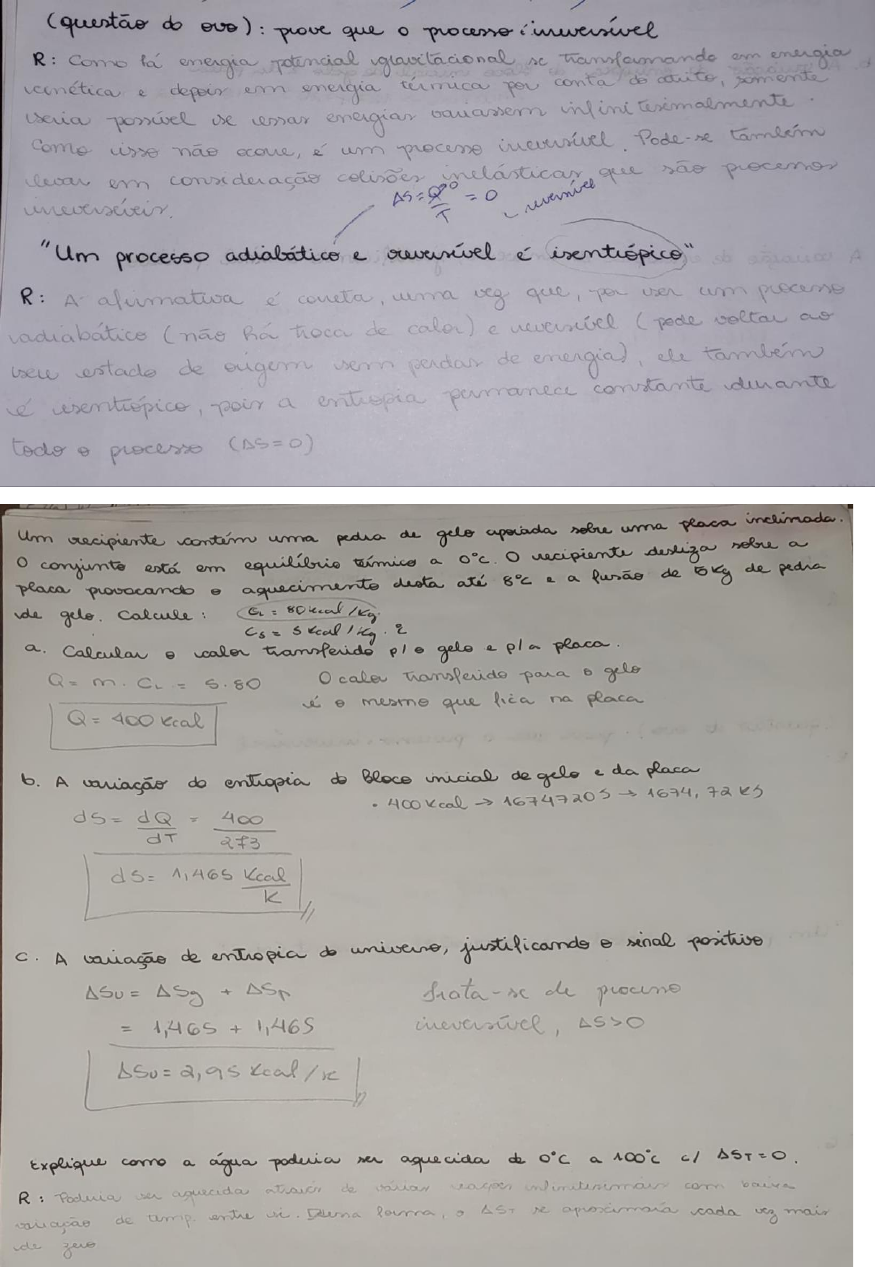 (questão do ovo): prove que o processo é irreversível
R: Como há energia potencial gravitacional se transformando em energia
cinética e depois em energia térmica por conta do atrito, somente
seria possível se essas energias variassem infinitesimalmente.
Como isso não ocorre, é um processo irreversível. Pode-se também
levar em consideração colisões inelásticas que são processos
irreversíveis.
ΔS = Q⁰/T = 0 reversível
"Um processo adiabático e reversível é isentrópico"
R: A afirmativa é correta, uma vez que, por ser um processo
adiabático (não há troca de calor) e reversível (pode voltar ao
seu estado de origem sem perdas de energia), ele também
é isentrópico, pois a entropia permanece constante durante
todo o processo (ΔS=0)
Um recipiente contém uma pedra de gelo apoiada sobre uma placa inclinada.
O conjunto está em equilíbrio térmico a 0°C. O recipiente desliza sobre a
placa provocando o aquecimento desta até 8°C e a fusão de 5 Kg de pedra
de gelo. Calcule: CL = 80 Kcal/Kg.
Cs = 5 Kcal/Kg.
a. Calcular o calor transferido p/ o gelo e p/ a placa.
Q = m . CL = 5.80 O calor transferido para o gelo
é o mesmo que fica na placa
Q = 400 Kcal
b. A variação do entropia do Bloco inicial de gelo e da placa
• 400 Kcal → 1674720J → 1674,72 KJ
dS = dQ/dT = 400/273
dS = 1,465 Kcal/K
c. A variação de entropia do universo, justificando o sinal positivo
ΔSU = ΔSg + ΔSp Trata-se de processo
= 1,465 + 1,465 irreversível, ΔS>0
ΔSU = 2,95 Kcal/K
Explique como a água poderia ser aquecida de 0°C a 100°C c/ ΔST = 0.
R: Poderia ser aquecida através de várias reações infinitesimais com baixa
variação de temp. entre si. Dessa forma, o ΔST se aproximaria cada vez mais
de zero